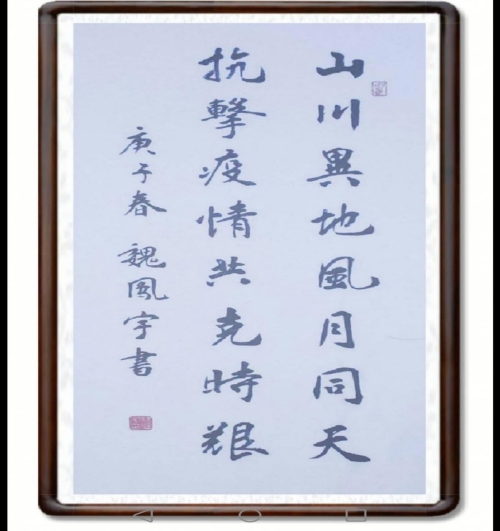 山川異地風月同天
抗擊疫情共克時艱
庚子春 魏鳳宇書